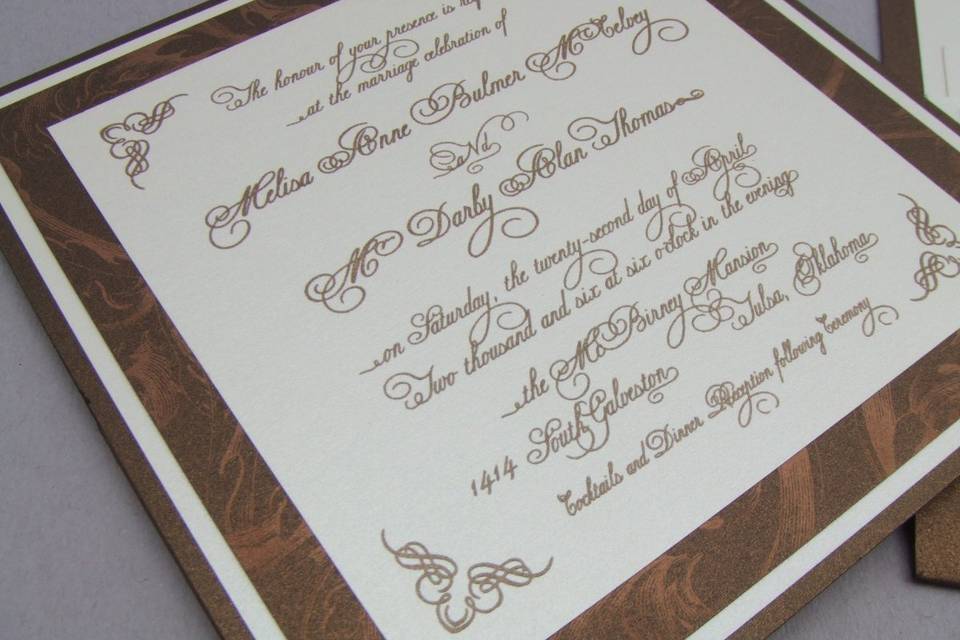 The honour of your presence is
at the marriage celebration of
Melisa Anne Bulmer McKelvey
aNd
Mr Darby Alan Thomas
on Saturday, the twenty-second day of April
Two thousand and six at six o'clock in the evening
the McBirney Mansion
1414 South Galveston Tulsa, Oklahoma
Cocktails and Dinner Reception following Ceremony